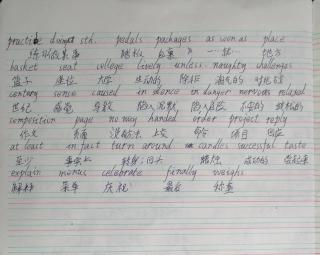 practise doing sth. pedals packages as soon as place
练习做某事 踏板 包裹 一…就… 地方
basket seat college lively unless naughty challenges
篮子 座位 大学 生动的 除非 淘气的 对抗
century sense caused in silence in danger nervous relaxed
世纪 感觉 导致 陷入沉默 陷入危险 不安的 放松的
composition page no way handed order project reply
作文 页面 没办法 上交 命令 项目 回应
at least in fact turn around candles successful taste
至少 事实上 转身;回头 蜡烛 成功的 尝起来
explain menus celebrate finally weighs
解释 菜单 庆祝 最后 称重